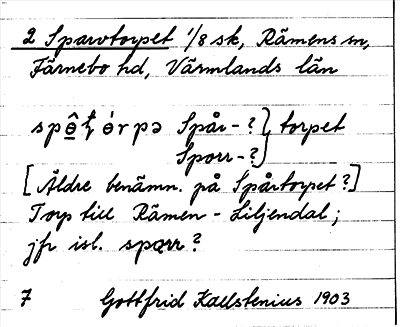 2 Sparvtorpet 1/8 sk, Rämens sn,
Färnebo hd, Värmlands län
Spår-? } torpet
Sporr-?
[Äldre benämn. på Spårtorpet?]
Torp till Rämen - Liljendal;
jfr isl. spǫrr?
7 Gottfrid Kallstenius 1903